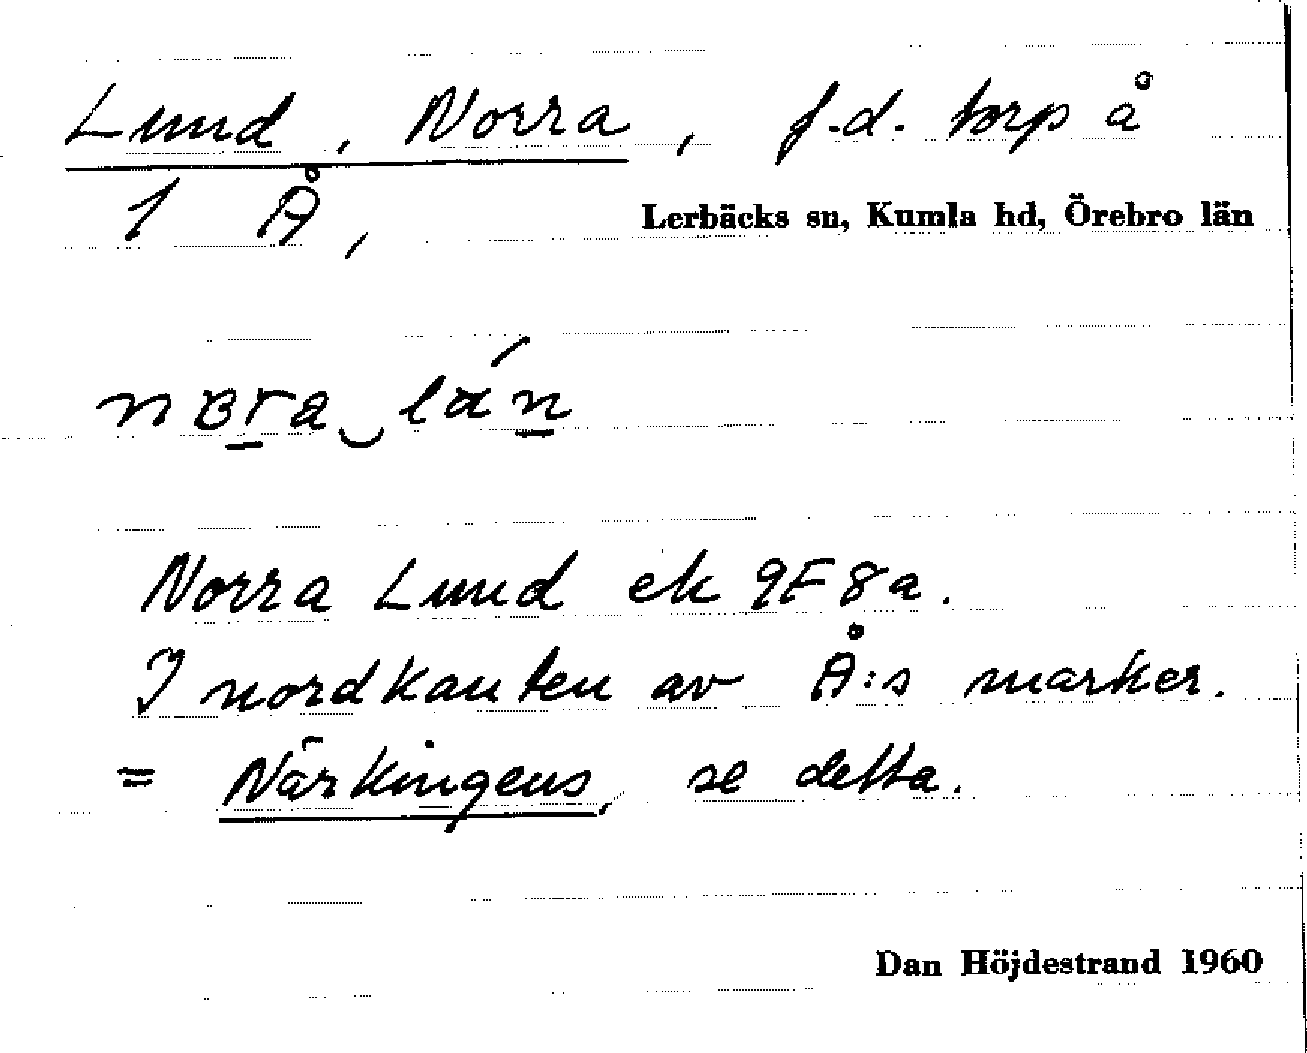 Lund, Norra, f.d. torp å
1 Å,
Lerbäcks sn, Kumla hd, Örebro län
Norra Lund ek 9F8a.
I nordkanten av Å:s marker.
= Närkingens, se detta.
Dan Höjdestrand 1960